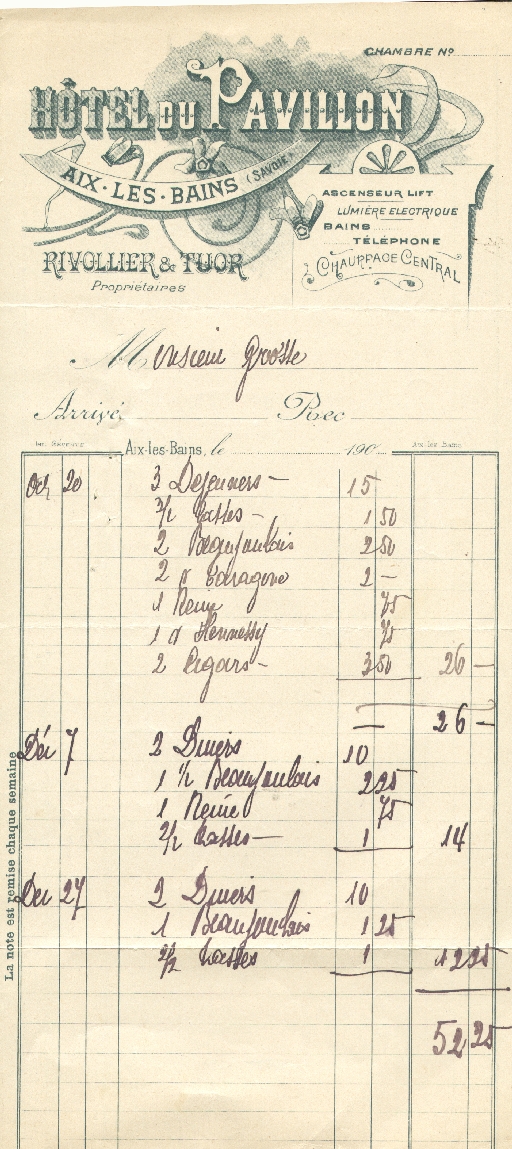 CHAMBRE Nº
HÔTEL DU PAVILLON
AIX-LES-BAINS (SAVOIE)
ASCENSEUR LIFT
LUMIÈRE ELECTRIQUE
BAINS
TÉLÉPHONE
CHAUFFAGE CENTRAL
RIVOLLIER & TUOR
Propriétaires
Monsieur Grosse
Arrivé Rec
Aix-les-Bains, le 190 Aix-les-Bains
Oct 20 3 Dejeuners — 15
3/2 Tasses — 1 50
2 Beaujaulais 2 50
2 Tarragone 2 —
1 Reine 75
1 Hennessy 75
2 Cigars — 3 50 26 —
— 26 —
7 2 Diners 10
1 1/2 Beaujaulais 2 25
1 Reine 75
2/2 Tasses — 1 14
Dec 27 2 Diners 10
1 Beaujaulais 1 25
2/2 Tasses 1 12 25
52 25
La note est remise chaque semaine